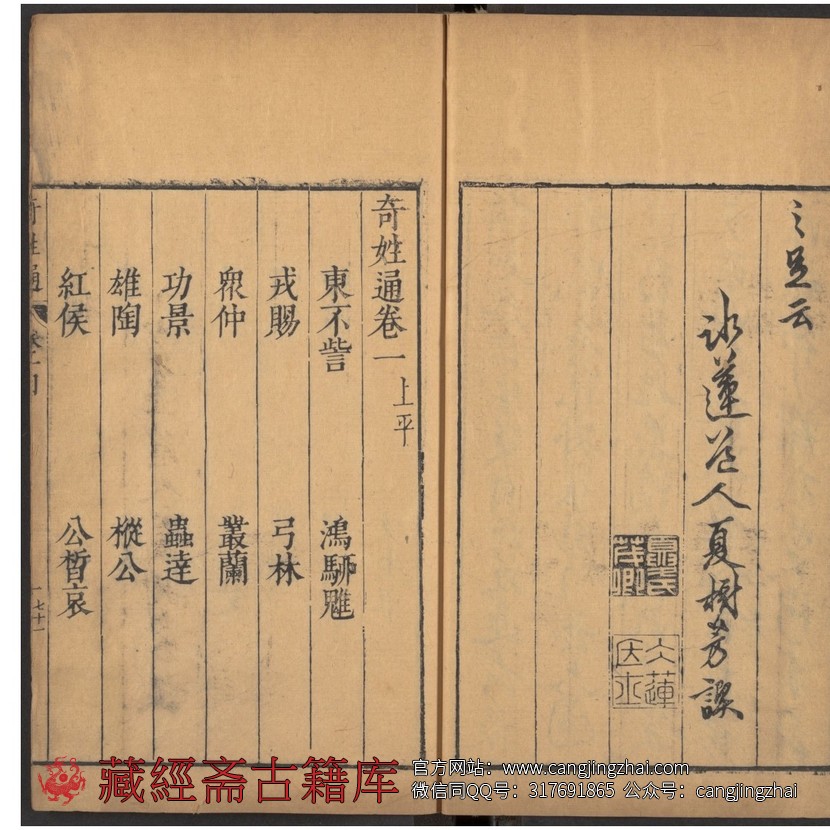 之足云
冰蓮道人夏樹芳譔
夏氏
茂卿
奇姓通卷一 上平
東不訾 鴻魋
戎賜 弓林
衆仲 叢蘭
功景 蟲達
雄陶 樅公
紅侯 公晳哀
奇姓通
藏經斋古籍库
官方网站：www.cangjingzhai.com
微信同QQ号：317691865 公众号：cangjingzhai